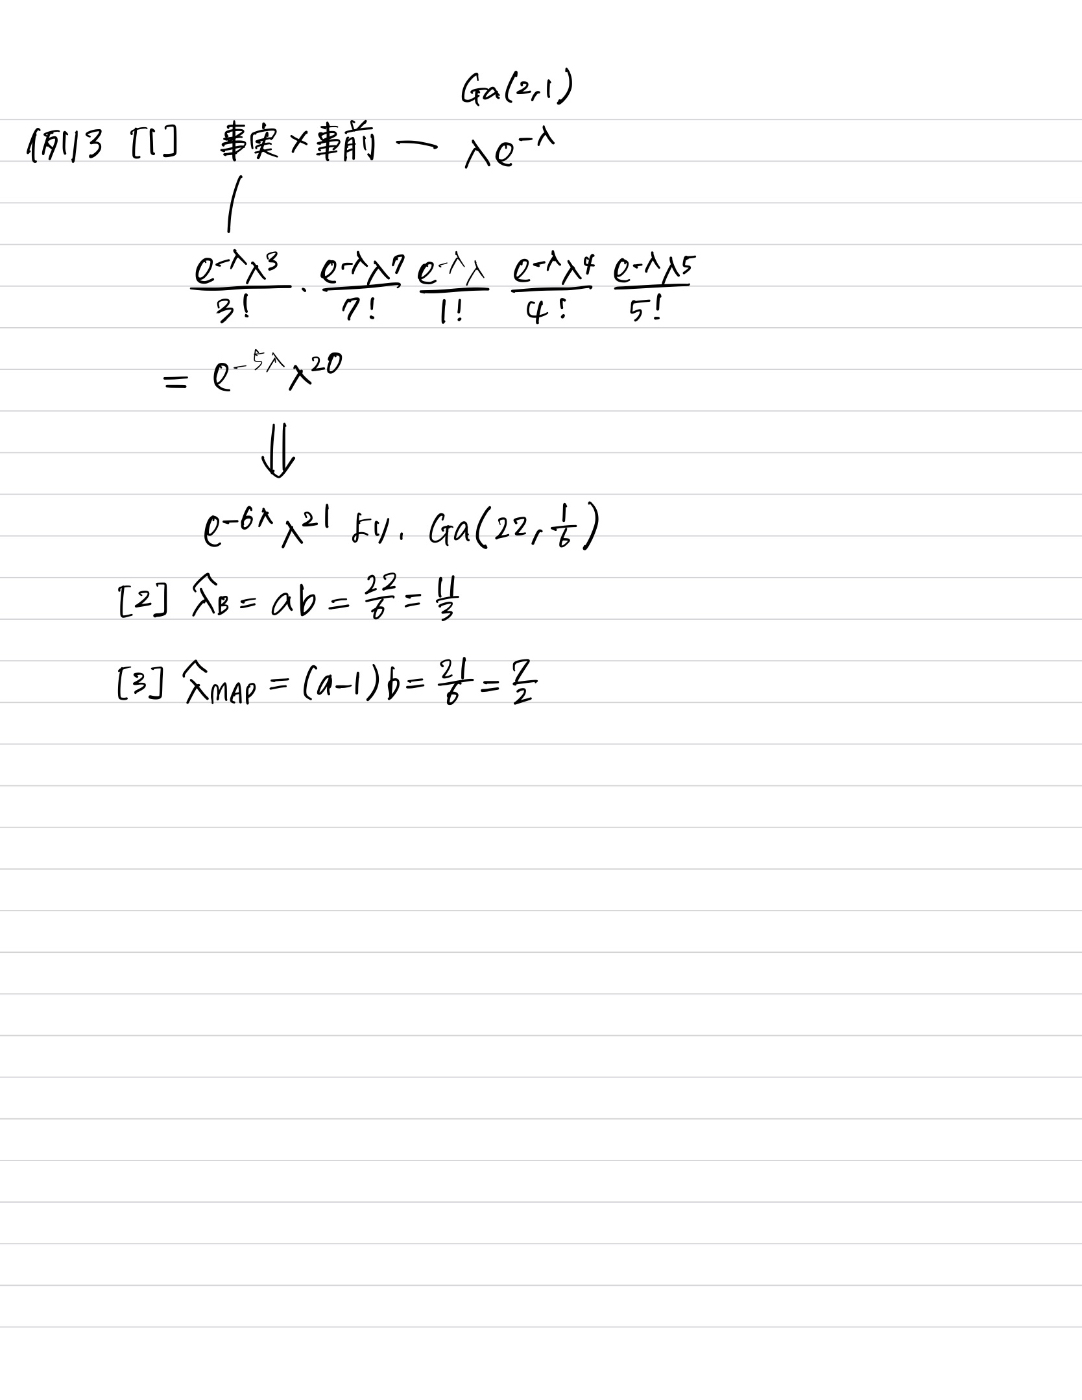 Ga(2,1)
例3 [1] 事実×事前 — λe^{-λ}
\frac{e^{-λ}λ^3}{3!} · \frac{e^{-λ}λ^7}{7!} \frac{e^{-λ}λ}{1!} \frac{e^{-λ}λ^4}{4!} \frac{e^{-λ}λ^5}{5!}
= e^{-5λ}λ^{20}
⇓
e^{-6λ}λ^{21} より. Ga(22, \frac{1}{6})
[2] \hat{λ}_B = ab = \frac{22}{6} = \frac{11}{3}
[3] \hat{λ}_{MAP} = (a-1)b = \frac{21}{6} = \frac{7}{2}